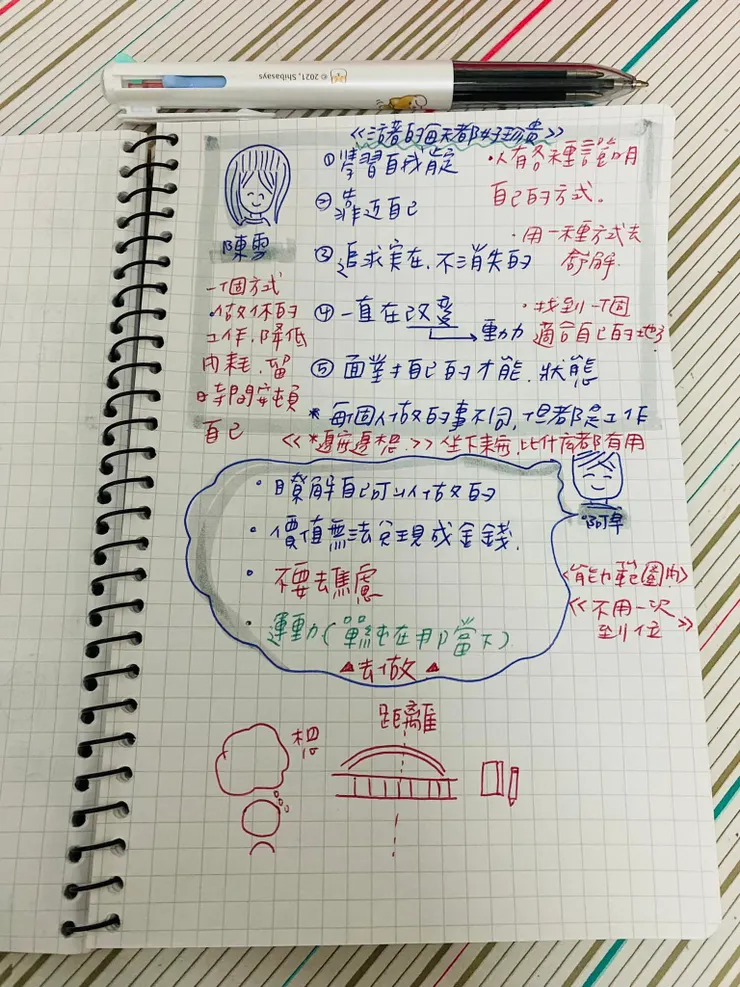 © 2021, Shibasays
《活著的每天都好珍貴》
①學習自我肯定
②靠近自己
③追求实在、不消失的
④一直在改變
→動力
⑤面對自己的才能、狀態
*每個人做的事不同,但都是工作
•人有各種說明
自己的方式。
•用一種方式去
舒解.
•找到一個
適合自己的地方
陳雪
一個方式
•做休的
工作、降低
內耗、留
時間安頓
自己
坐下來 比什麼都有用
•瞭解自己可以做的
•價值無法兌現成金錢.
•不要去焦慮
•運動(單純在那當下)
▲去做▲
阿早
<能力範圍內>
《不用一次
到位》
距離
想